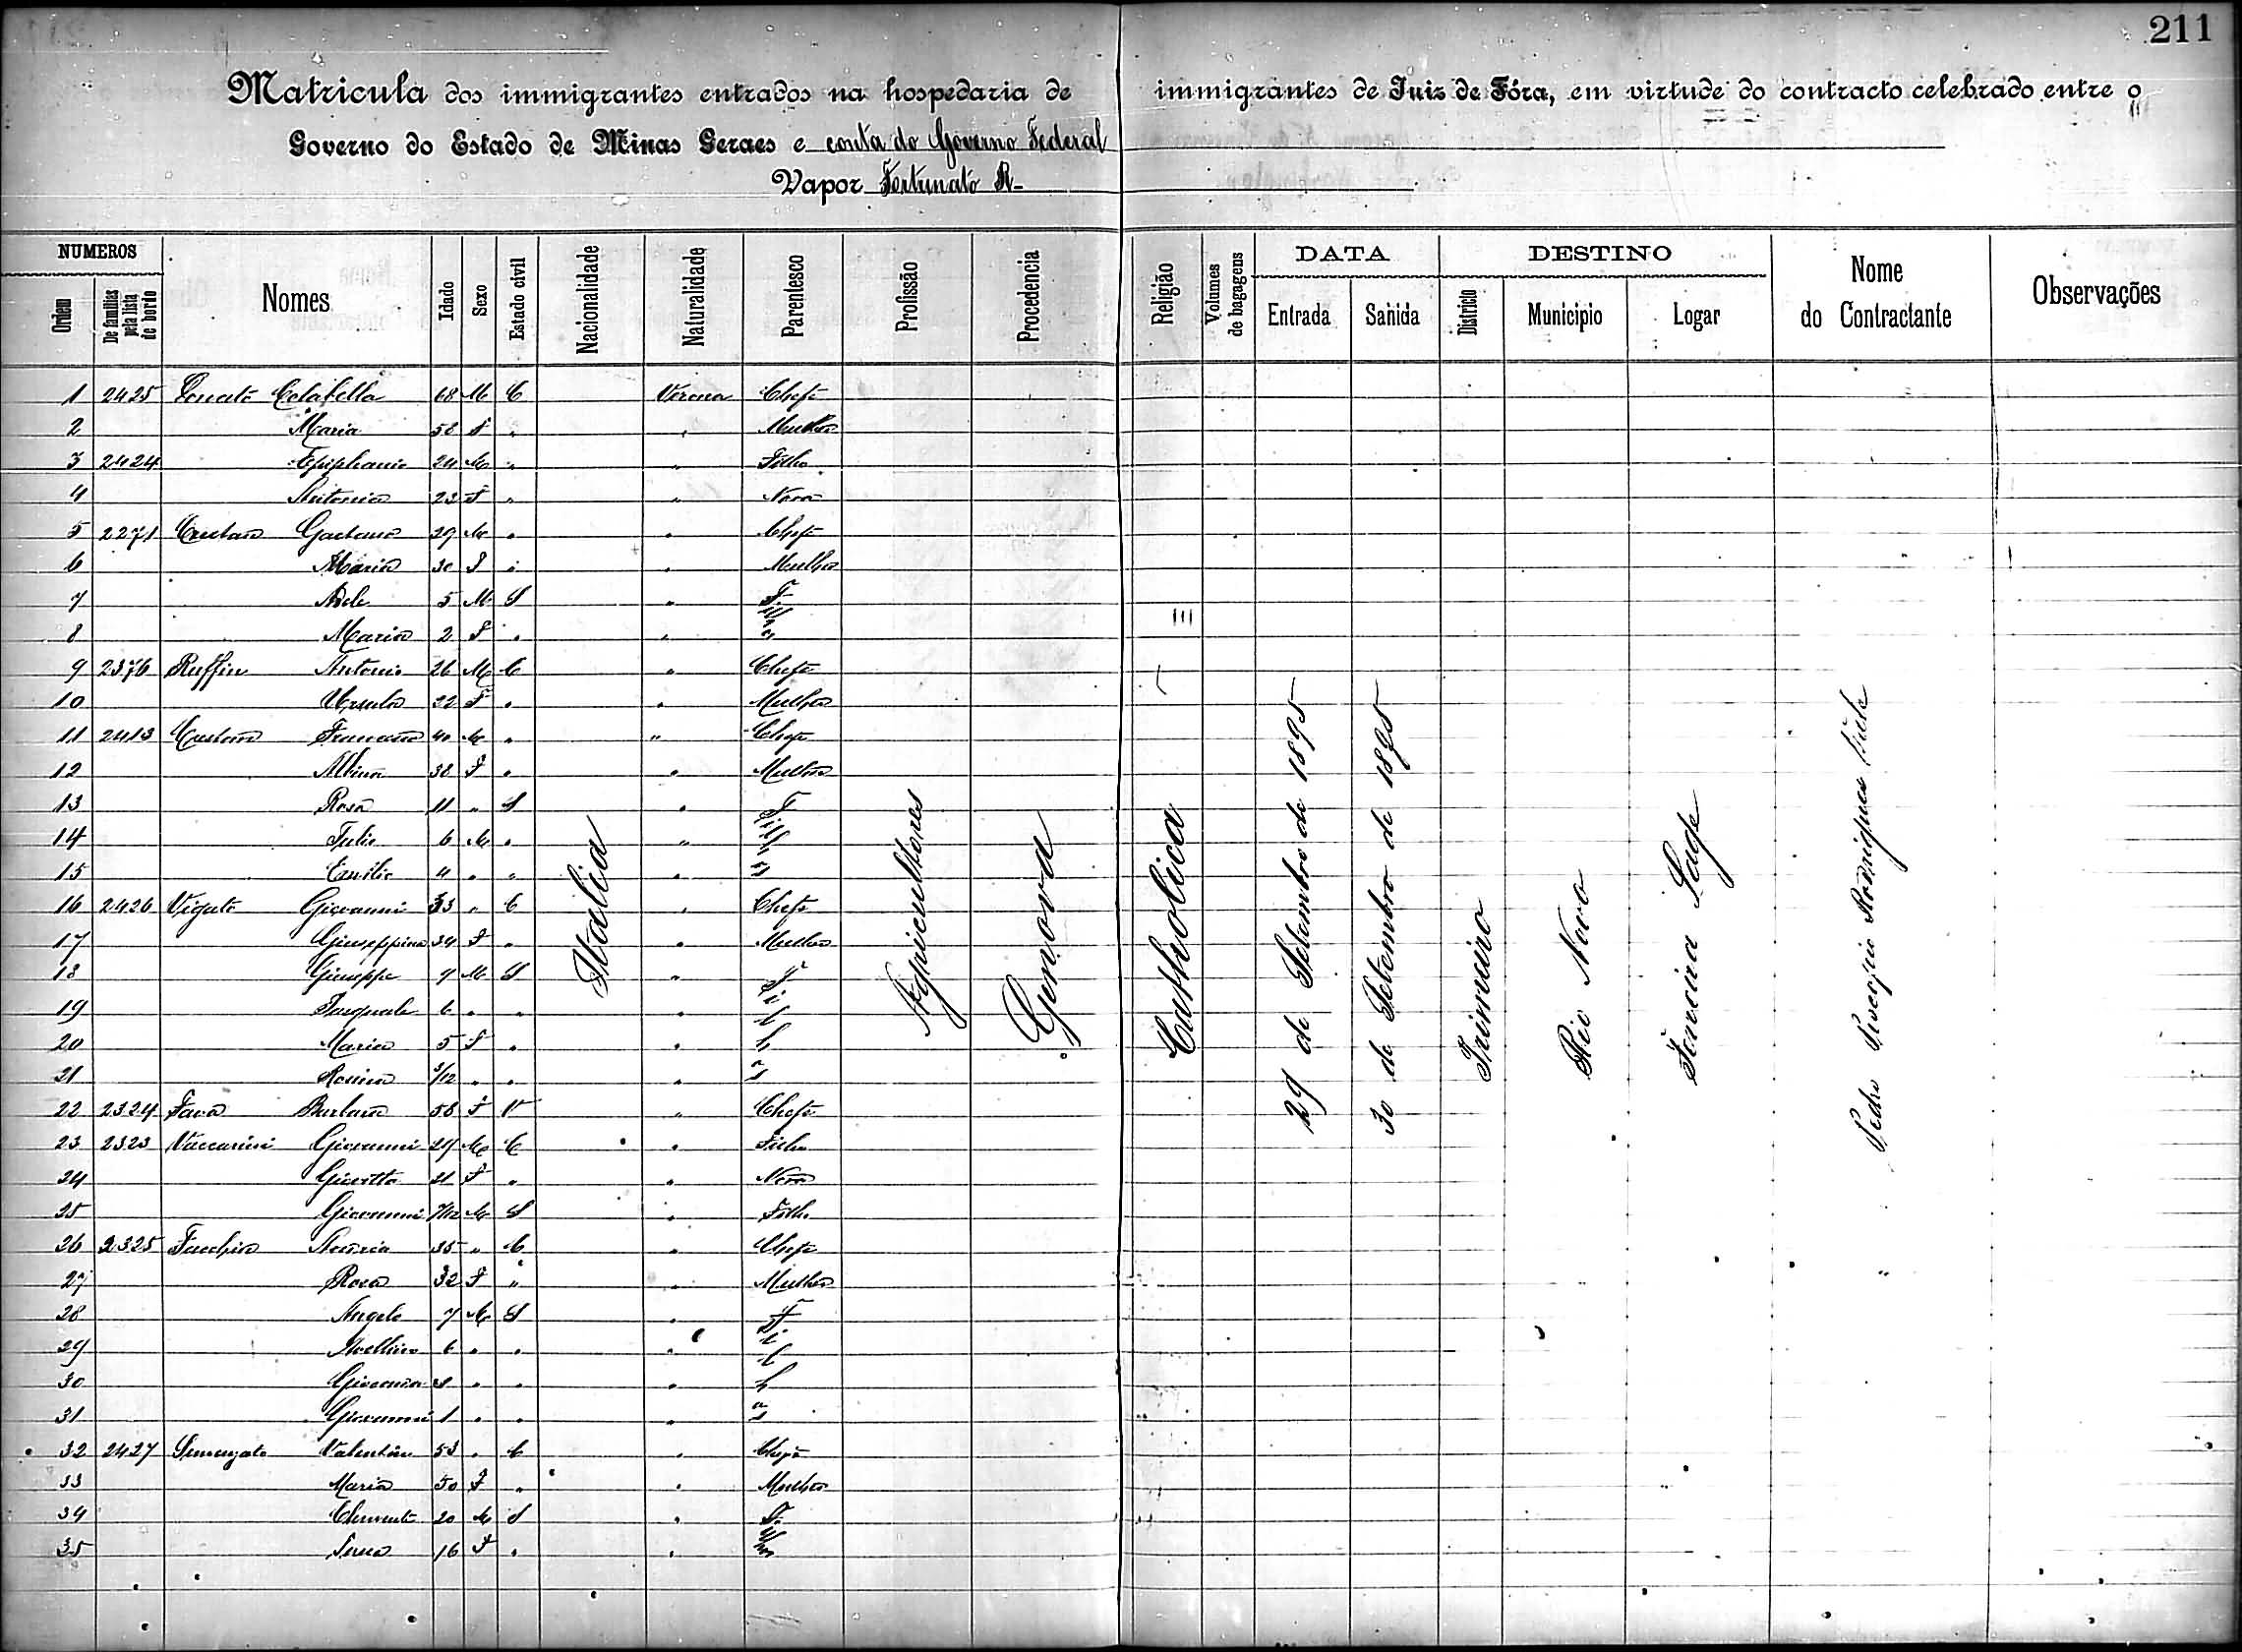 211
Matricula dos immigrantes entrados na hospedaria de immigrantes de Juiz de Fóra, em virtude do contracto celebrado entre o
Governo do Estado de Minas Geraes e conta do Governo Federal
Vapor Fortunato R.
NUMEROS Nomes Idade Sexo Estado civil Nacionalidade Naturalidade Parentesco Profissão Procedencia Religião Volumes de bagagens DATA DESTINO Nome do Contractante Observações
Ordem De familias pela lista de bordo Entrada Sahida Districto Municipio Logar
1 2425 68 M C Verona Chefe
2 Maria 58 F " " Mulher
3 2424 Epiphanio 24 M " " Filho
4 Antonia 23 F " " Nora
5 2271 Gaetano 29 M " " Chefe
6 Maria 30 F " " Mulher
7 5 M S " F
8 Maria 2 F " "
9 2376 Ruffin Antonio 26 M C " Chefe
10 Ursula 22 F " " Mulher
11 2413 Francesco 40 M " " Chefe
12 Albina 38 F " " Mulher
13 Rosa 11 " S " F
14 Julio 6 M " " i
15 Emilio 4 " " " s
16 2426 Vigato Giovanni 33 " C " Chefe
17 Giuseppina 34 F " " Mulher
18 Giuseppe 9 M S " F
19 Pasquale 6 " " " i l
20 Maria 5 F " " h
21 Rosina /12 " " " o s
22 2324 Fava Barbara 58 F V " Chefe
23 2323 Vaccarini Giovanni 29 M C " Filho
24 21 F " " Nora
25 Giovanni 7/12 M S " Filho
26 2325 35 " C " Chefe
27 Rosa 32 F " " Mulher
28 Angelo 7 M S " F
29 Avellino 6 " " " i l
30 " " " h
31 Giovanni 1 " " " o s
32 2427 Semenzato Valentino 53 " C " Chefe
33 Maria 50 F " " Mulher
34 Clemente 20 M S " F
35 16 F " "
Italia
Agricultores
Genova
Catholica
29 de Setembro de 1895
30 de Setembro de 1895
Primeiro
Rio Novo
Ferreira Lage
Pedro Procopio Rodrigues Valle